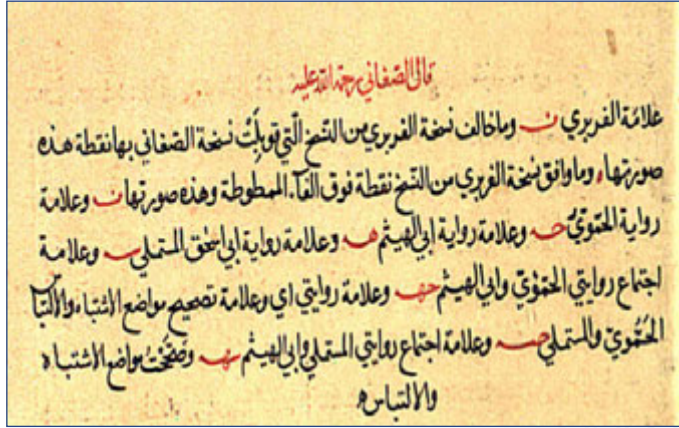 قال الصغاني رحمة الله عليه
علامة الفربري ف وما خالف نسخة الفربري من النسخ الّتي قوبلت نسخة الصغاني بها نقطة هذه
صورتها، وما وافق نسخة الفربري من النسخ نقطة فوق الفاء الممطوطة وهذه صورتها ف وعلامة
رواية الحمّويّ حـ وعلامة رواية ابي الهيثم هـ وعلامة رواية ابي اسحق المستملي سـ وعلامة
اجتماع روايتي الحمّويّ وابي الهيثم حهـ وعلامة روايتي اي وعلامة تصحيح مواضع الاشتباه والالتبا
الحَمُّويّ والمستملي وعلامة اجتماع روايتي المستملي وابي الهيثم سهـ وصُحّحَتْ مواضع الاشتباه
والالتباس ه